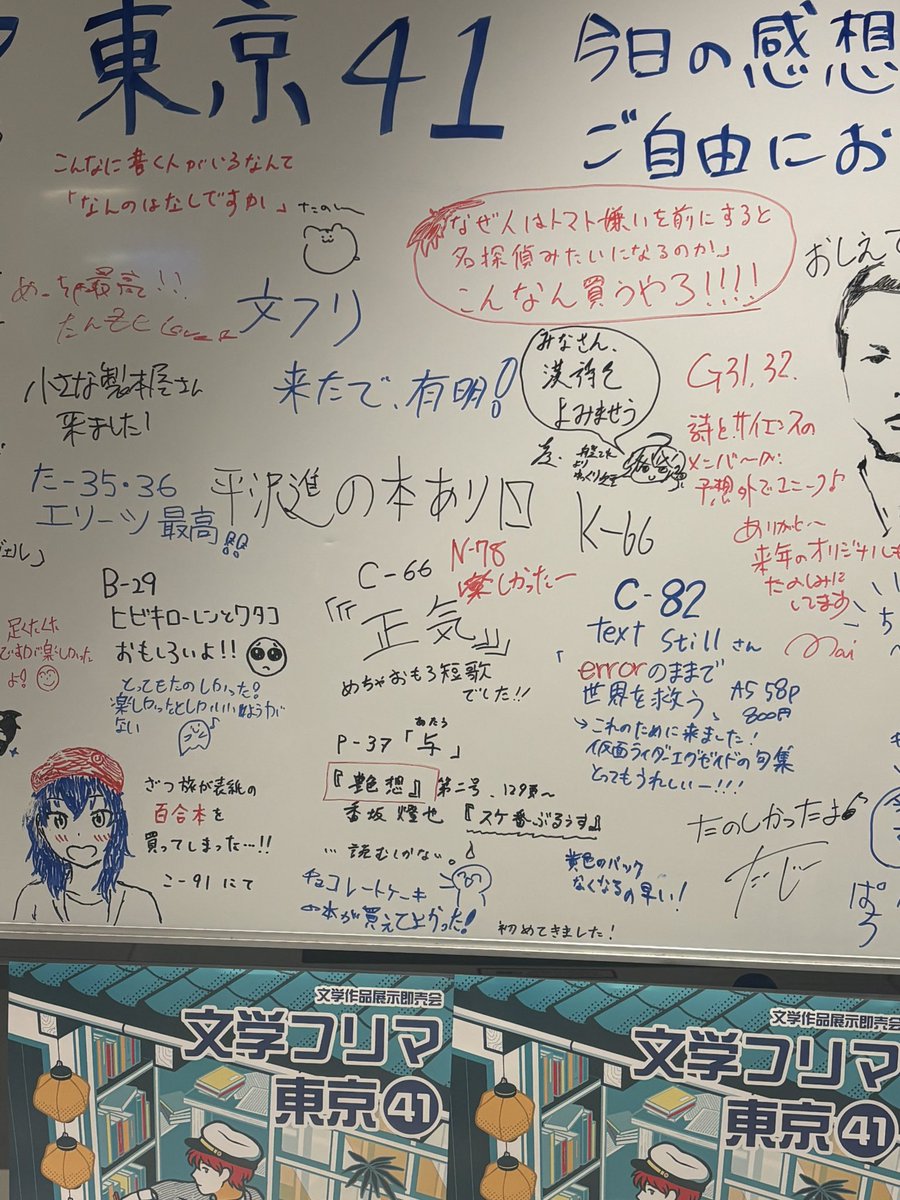 東京41
今日の感想
ご自由にお
こんなに書く人がいるなんて
「なんのはなしですか」
たのしー
なぜ人はトマト嫌いを前にすると
名探偵みたいになるのか」
こんなん買うやろ!!!!
おしえて
めっちゃ最高!!
文フリ
来たで、有明!
小さな製本屋さん
来ました!
みなさん、
漢詩を
よみませう
G31,32.
詩とサイエンスの
メンバーが
予想外でユニーク♪
ありがと〜
来年のオリジナルも
たのしみに
してます
Mai
た-35・36
エリーツ最高!!
平沢進の本あり〼
K-66
B-29
ヒビキローレンとワタコ
おもしろいよ!!
とってもたのしかった!
楽しかったとしかいいようが
ない
足くたくた
ですが楽しかった
よ!
C-66
『『正気』』
めちゃおもろ短歌
でした!!
N-78
楽しかったー
C-82
text still さん
「errorのままで
世界を救う」
A5 58p
800円
→これのために来ました!
仮面ライダーエグゼイドの句集
とってもうれしいー!!!
P-37「与」
あたう
『艶想』第二号、129頁〜
香坂燈也『スケ番ぶるうす』
…読むしかない。
ざつ旅が表紙の
百合本を
買ってしまった…!!
こ-91にて
チョコレートケーキ
の本が買えてよかった!
黄色のパック
なくなるの早い!
初めてきました!
たのしかったよ♪
ぱろ
文学作品展示即売会
文学フリマ
東京41
文学作品展示即売会
文学フリマ
東京41